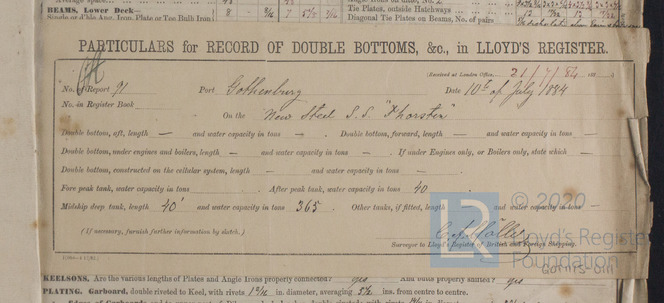 BEAMS, Lower Deck—
Single or d'ble Ang. Iron, Plate or Tee Bulb Iron
Tie Plates, outside Hatchways
Diagonal Tie Plates on Beams, No. of pairs
PARTICULARS for RECORD OF DOUBLE BOTTOMS, &c., in LLOYD'S REGISTER.
Received at London Office, 21/7/84 188
No. of Report 91 Port Gothenburg Date 10th of July 1884
No. in Register Book
On the New Steel S.S. "Thorsten"
Double bottom, aft, length — and water capacity in tons — . Double bottom, forward, length — and water capacity in tons —
Double bottom, under engines and boilers, length — and water capacity in tons — . If under Engines only, or Boilers only, state which —
Double bottom, constructed on the cellular system, length — and water capacity in tons — .
Fore peak tank, water capacity in tons . After peak tank, water capacity in tons 40 .
Midship deep tank, length 40' and water capacity in tons 365 . Other tanks, if fitted, length and water capacity in tons —
(If necessary, furnish further information by sketch).
Surveyor to Lloyd's Register of British and Foreign Shipping.
© 2020
Lloyd's Register
Foundation
KEELSONS. Are the various lengths of Plates and Angle Irons properly connected? yes And butts properly shifted? yes
PLATING. Garboard, double riveted to Keel, with rivets in. diameter, averaging ins. from centre to centre.